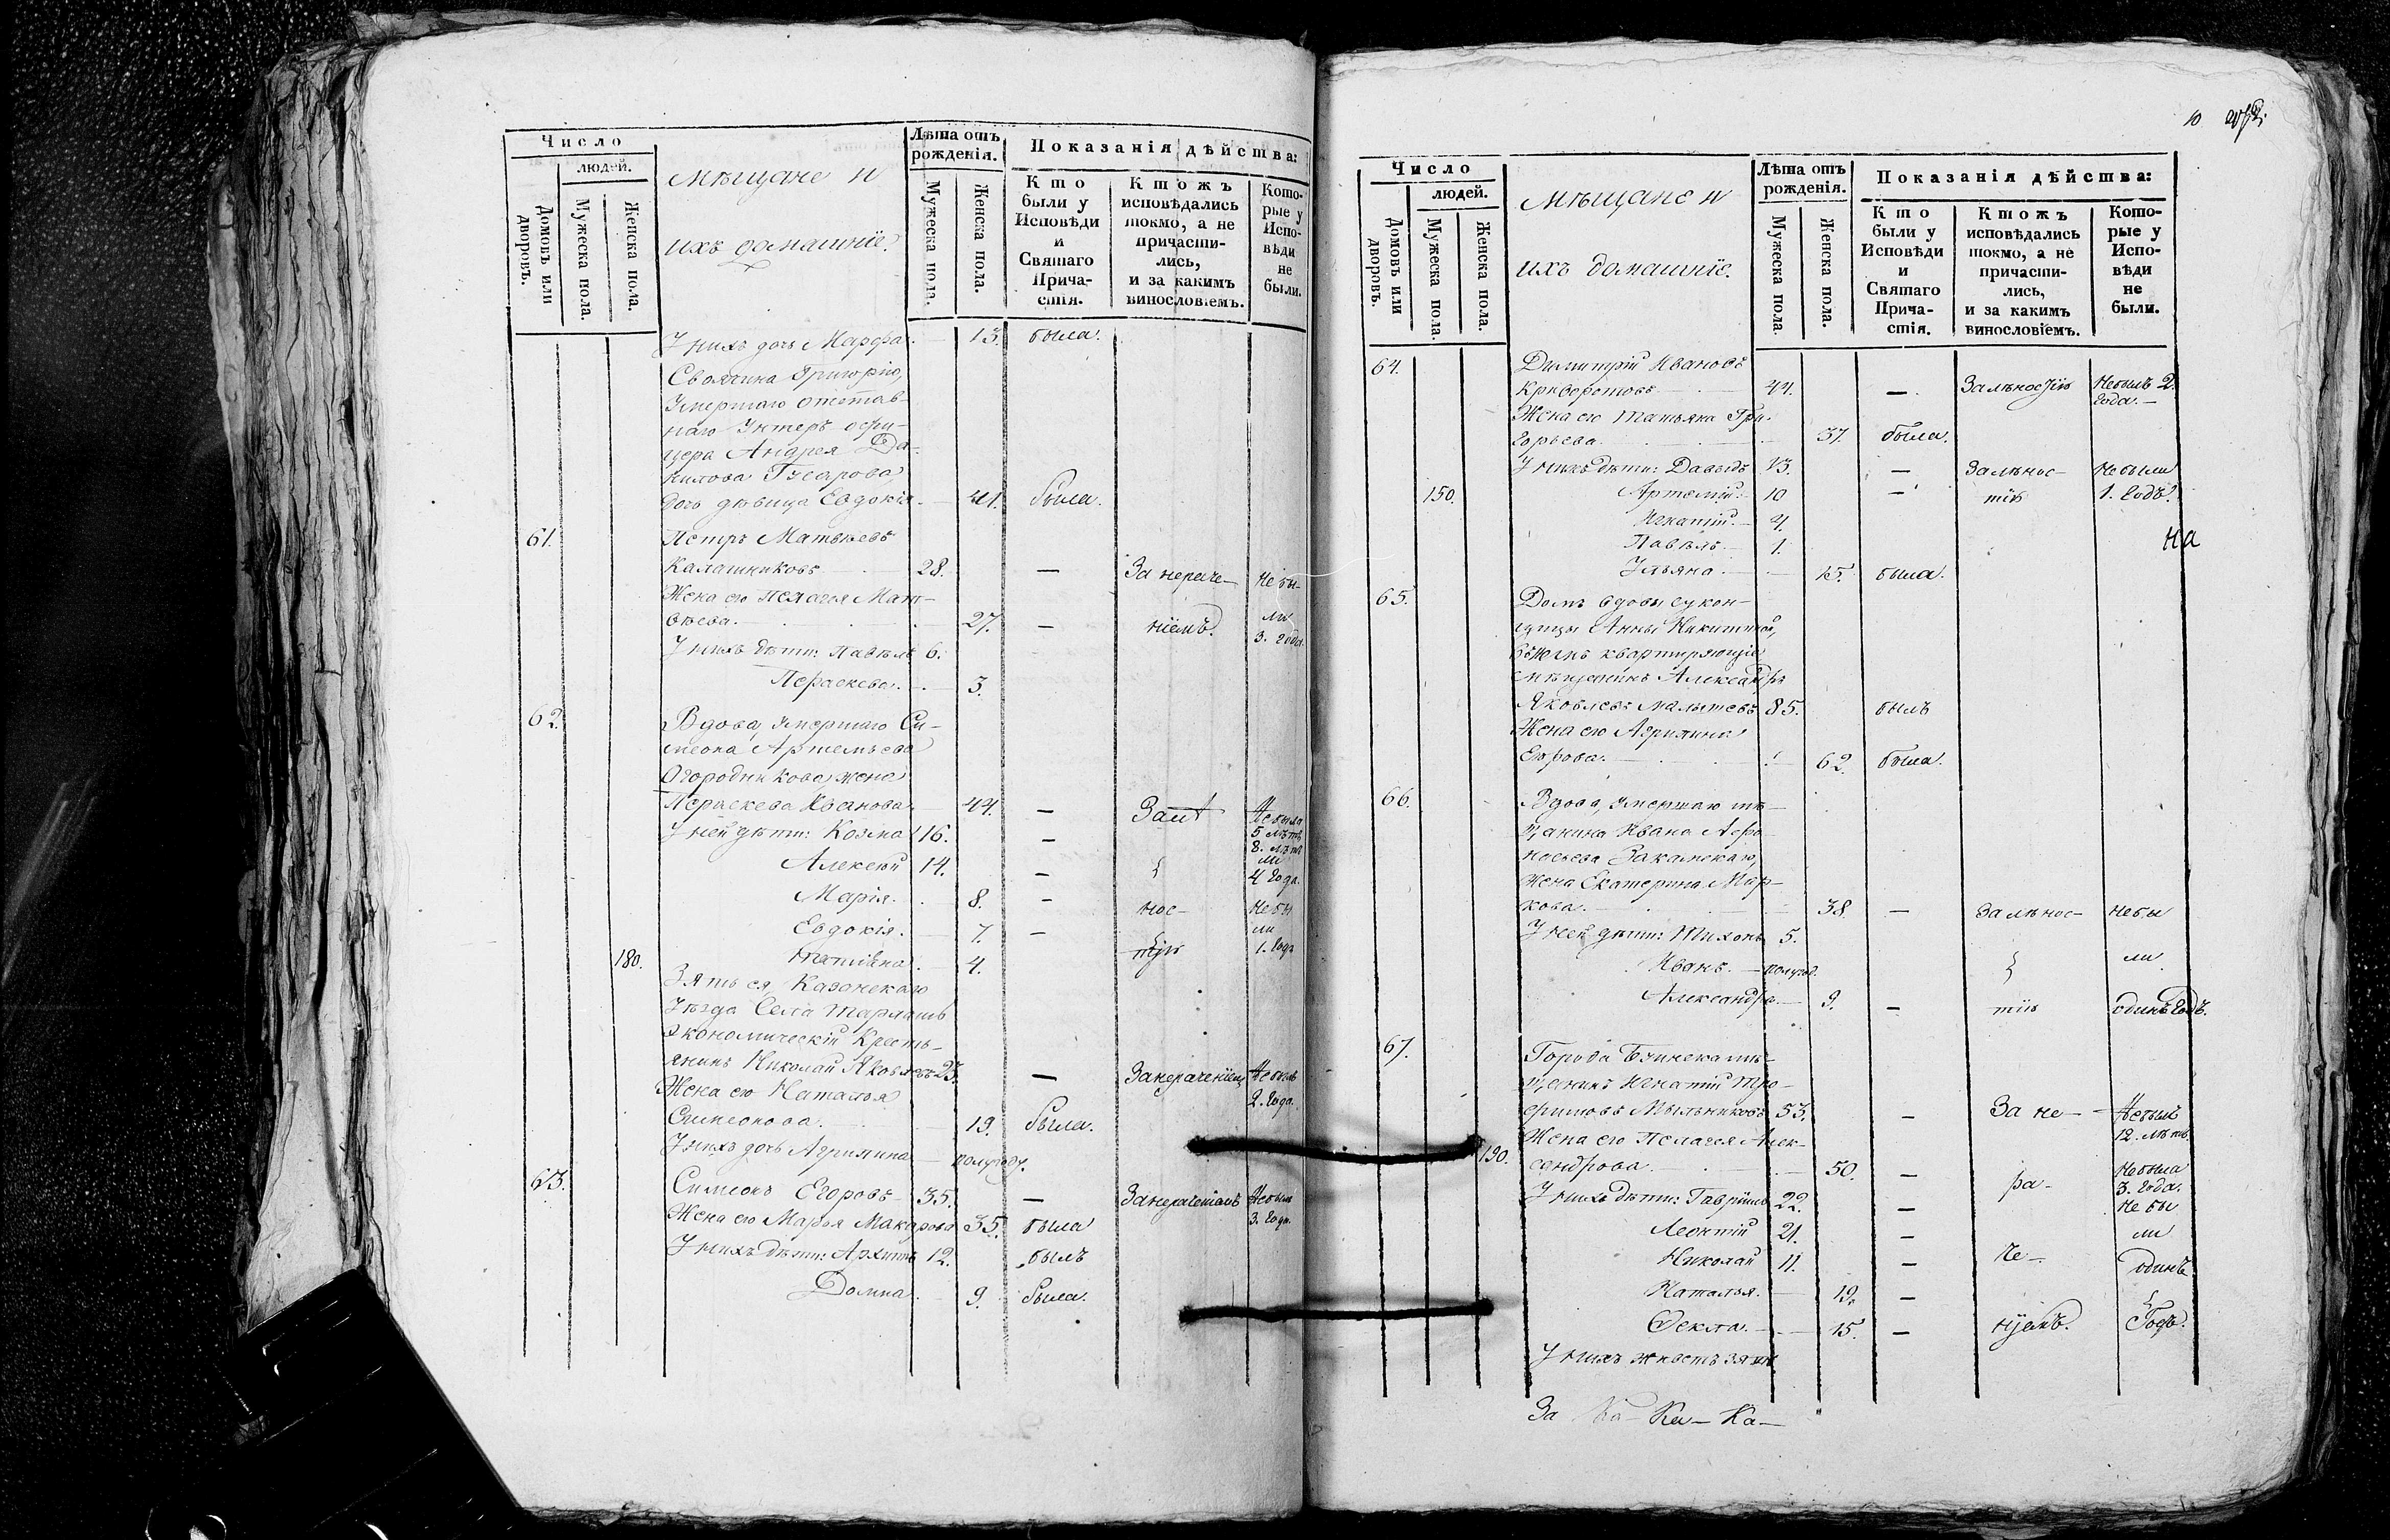 Число
людей.
Домовъ или дворовъ.
Мужеска пола.
Женска пола.
мѣщане и
ихъ домашніе.
Лѣта отъ рожденія.
Мужеска пола.
Женска пола.
Показанія дѣйства:
Кто были у Исповѣди и Святаго Причастія.
Ктожъ исповѣдались токмо, а не причастились, и за какимъ винословіемъ.
Которые у Исповѣди не были.
У нихъ дочь Марфа. — 13. была.
Своячина Григорію,
Умершаго отстав-
наго Унтеръ офи-
цера Андрея Да-
нилова Гусарова
дочь дѣвица Евдокія. — 41. была.
61. Петръ Матвѣевъ
Калашниковъ 28. — За нераче- Небы-
Жена его Пелагея Мат-
вѣева. 27. — ніемъ. ли 3. года.
У нихъ дѣти: Павелъ 6.
Параскева. — 3.
62. Вдова, умершаго Си-
меона Артемьева
Огородникова жена
Параскева Иванова. 44. — Залѣ Небыла 5 лѣтъ
У ней дѣти: Козма 16. — 8. лѣтъ
Алексѣй 14. — ли 4 года.
Марія. 8. — нос- Небы
Евдокія. 7. — ли
180. 4. тію 1. годъ
Зять ея, Казанскаго
Уѣзда Села Тарлашъ
Экономическій Кресть-
янинъ Николай Яковлевъ 23. — Занераченіемъ Небылъ 2. года.
Жена его Наталья
Симеонова. 19. была.
У нихъ дочь Агрипина — полугоду.
63. Симеонъ Егоровъ 35. — Занераченіемъ Небылъ 3. года.
Жена его Марья Макарова 35. была
У нихъ дѣти: Архипъ 12. былъ
Домна. 9. была.
10
Число
людей.
Домовъ или дворовъ.
Мужеска пола.
Женска пола.
мѣщане и
ихъ домашніе.
Лѣта отъ рожденія.
Мужеска пола.
Женска пола.
Показанія дѣйства:
Кто были у Исповѣди и Святаго Причастія.
Ктожъ исповѣдались токмо, а не причастились, и за какимъ винословіемъ.
Которые у Исповѣди не были.
64. Димитрій Ивановъ
Криворотовъ 44. — Залѣностію Небылъ 2. года. —
Жена его Татьяна Гри-
горьева. 37. была.
У нихъ дѣти: Давыдъ 13. — Залѣнос- Небыли
150. Артемій. 10 — тію 1. годъ.
Игнатій. — 4.
Павелъ. 1.
на
Ульяна. — 15. была.
65. Домъ вдовы сукон-
щицы Анны Никитиной,
въ немъ квартирующіе
мѣщанинъ Александръ
Яковлевъ Малышевъ 85. былъ
Жена его Агрипина
62. была.
66. Вдова, умершаго мѣ-
щанина Ивана Афа-
насьева Закамскаго,
жена Екатерина Мар-
кова. 38. — Залѣнос- Небы
У ней дѣти: Тихонъ 5.
Иванъ. — полугод. ли
Александра — 9. — тію одинъ годъ.
67. Города мѣ-
щанинъ Игнатій Тро-
фимовъ Мыльниковъ 53. — За не- Небылъ 12. лѣтъ
Жена его Пелагея Алек-
190. сандрова. 50. — ра- Небыла 3. года.
У нихъ дѣти: Гавріилъ 22. — Небы
Леонтій 21. — ли
Николай 11. — че- одинъ
Наталья. — 19. —
Фекла. — 15. — ніемъ. Годъ.
У нихъ живетъ зять
За Ка- Ка- Ка-